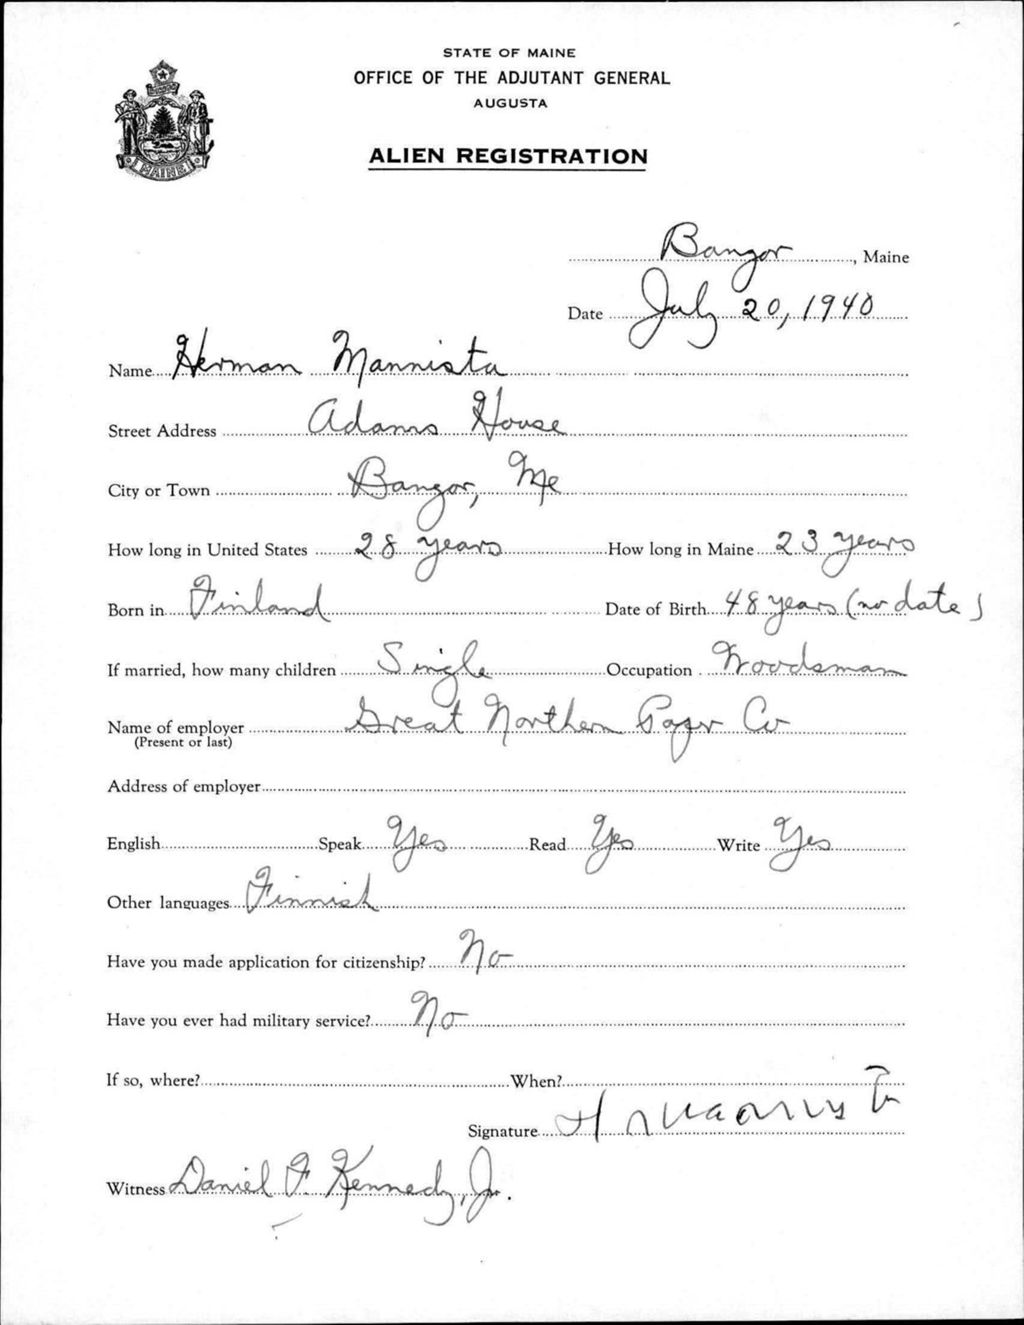 STATE OF MAINE
OFFICE OF THE ADJUTANT GENERAL
AUGUSTA
ALIEN REGISTRATION
MAINE
Bangor, Maine
Date July 20, 1940
Name Herman Mannista
Street Address Adams House
City or Town Bangor, Me
How long in United States 28 years How long in Maine 23 years
Born in Finland Date of Birth 48 years (no date)
If married, how many children Single Occupation Woodsman
Name of employer Great Northern Paper Co
(Present or last)
Address of employer
English Speak Yes Read Yes Write Yes
Other languages Finnish
Have you made application for citizenship? No
Have you ever had military service? No
If so, where? When?
Signature H
Witness Daniel F. Kennedy, Jr.